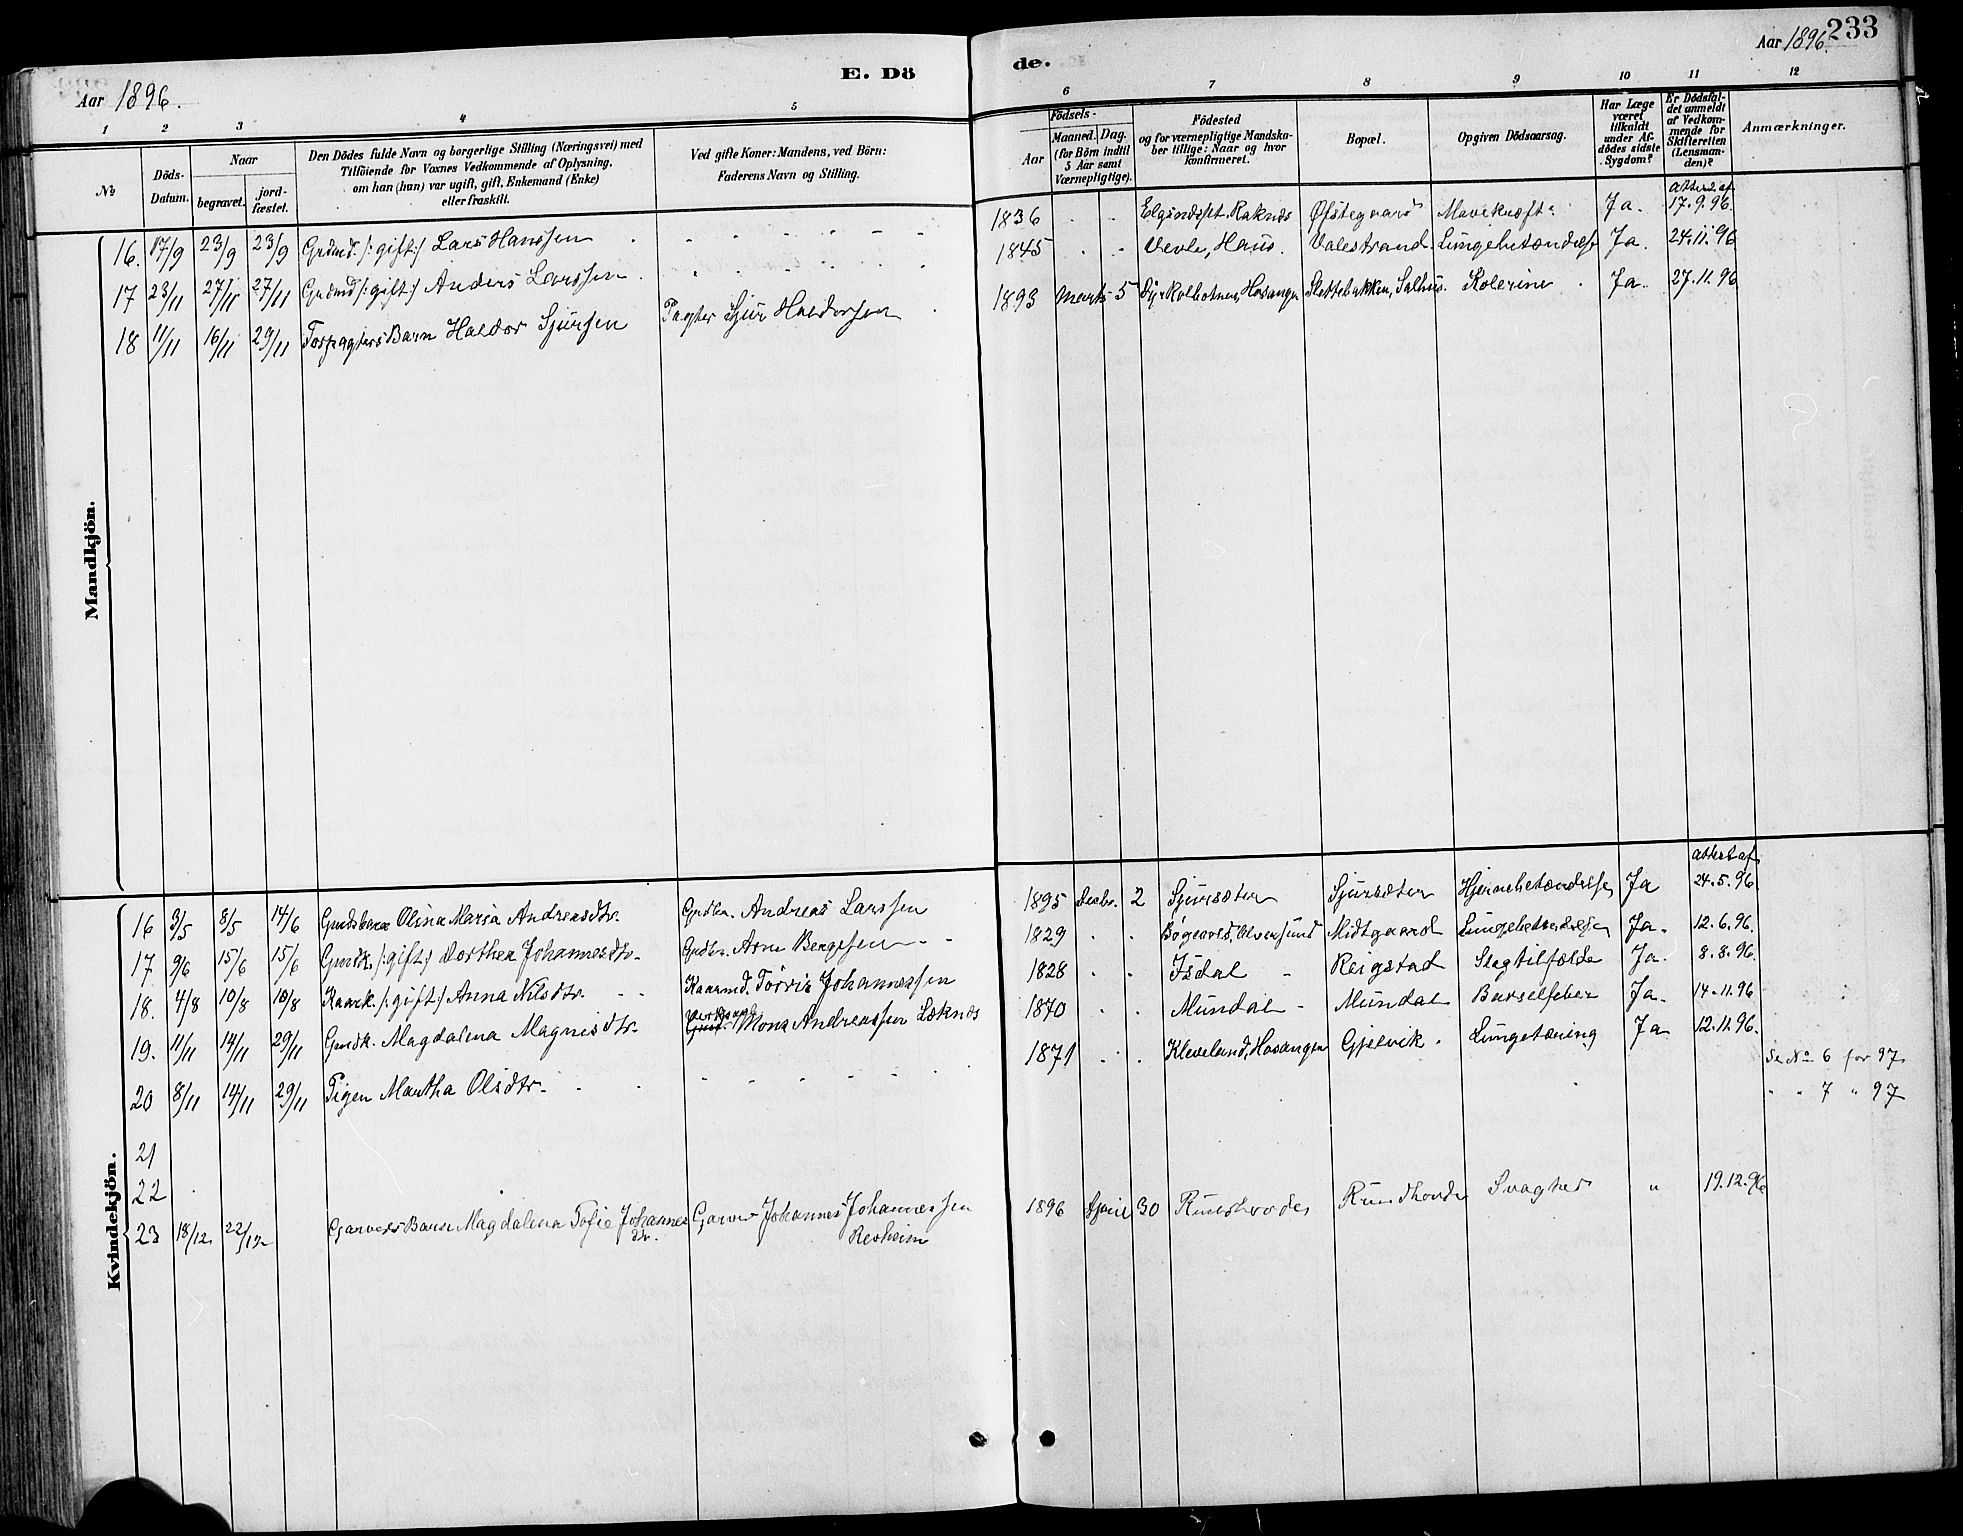 233
Aar 1896.
E. Dö
de.
Aar 1896.
1 2 3 4 5 6 7 8 9 10 11 12
No
Döds-Datum.
Naar
begravet.
jord-fæstet.
Den Dödes fulde Navn og borgerlige Stilling (Næringsvei) med
Tilföiende for Voxnes Vedkommende af Oplysning,
om han (hun) var ugift, gift, Enkemand (Enke)
eller fraskilt.
Ved gifte Koner: Mandens, ved Börn:
Faderens Navn og Stilling.
Födsels-
Aar
Maaned. Dag.
(for Börn indtil
5 Aar samt
Værnepligtige).
Födested
og for værnepligtige Mandska-
ber tillige: Naar og hvor
konfirmeret.
Bopæl.
Opgiven Dödsaarsag.
Har Læge
været
tilkaldt
under Af-
dödes sidste
Sygdom?
Er Dödsfal-
det anmeldt
af Vedkom-
mende for
Skifteretten
(Lensman-
den)?
Anmærkninger.
Mandkjön.
16. 17/9 23/9 23/9 Grdmd. /: gift :/ Lars Hanssen 1836 Raknes Øfstegaard Mavekræft Ja. Attest af 17.9.96.
17 23/11 27/11 27/11 Grdmd /: gift :/ Anders Larssen 1845 Vevle, Haus. Valestrand Lungebetændelse Ja. 24.11.96
18 11/11 16/11 29/11 Forpagters Barn Haldor Sjursen Pagter Sjur Haldorsen 1893 Marts 5 Hosanger Slettebakken, Salhus. Kolerine Ja. 27.11.96
Kvindekjön.
16 3/5 8/5 14/6 Grmdsbarn Olina Maria Andreasdtr. Grdbr. Andreas Larssen 1895 Decbr. 2 Sjursæter Sjursæter Hjernebetændelse Ja Attest af 24.5.96.
17. 9/6 15/6 15/6 Grmdk. /: gift :/ Dorthea Johannesdtr. Grdbr. Arne Bergesen 1829 Alversund Midtgaard Lungebetændelse Ja. 12.6.96.
18. 4/8 10/8 10/8 Kaark. /: gift :/ Anna Nilsdtr. Kaarmd. Törris Johannessen 1828 Isdal Reigstad Slagtilfælde Ja. 8.8.96.
19. 11/11 14/11 29/11 Grmdk. Magdalena Magnisdtr. Mons Andreassen Løknes 1870 Mundal Mundal Barselfeber Ja. 14.11.96
20 8/11 14/11 29/11 Pigen Martha Olsdtr. 1871 Kleveland, Hosanger Gjelvik. Lungetæring Ja 12.11.96.
21 Se No 6 for 97
22 " " 7 " 97
23 18/12 22/12 Garvers Barn Magdalena Sofie Johannesdtr. Garver Johannes Johannessen Resheim 1896 April 30 Rundhovde Svaghed " 19.12.96